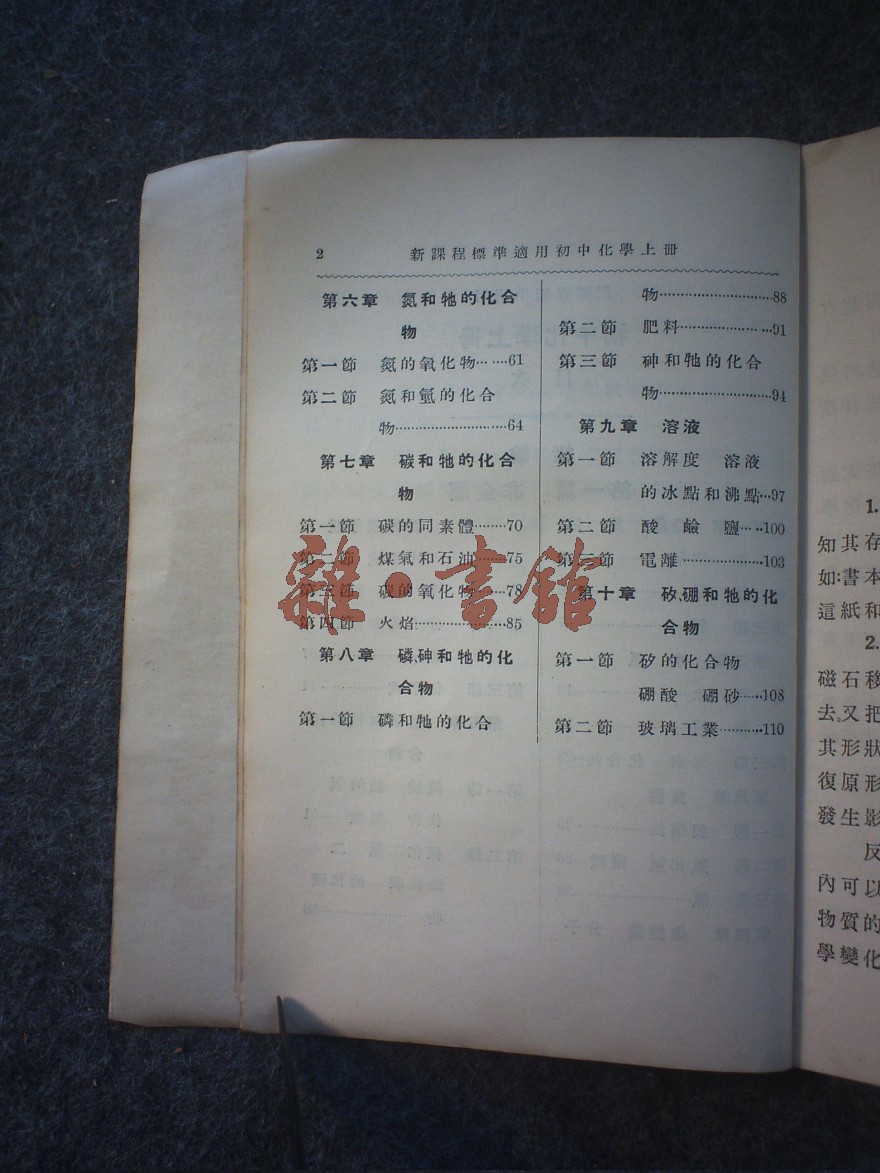 2 新課程標準適用初中化學上册
第六章 氮和牠的化合
物
第一節 氮的氧化物……61
第二節 氮和氫的化合
物……64
第七章 碳和牠的化合
物
第一節 碳的同素體……70
第二節 煤氣和石油……75
第三節 碳的氧化物……78
第四節 火焰……85
第八章 磷、砷和牠的化
合物
第一節 磷和牠的化合
物……88
第二節 肥料……91
第三節 砷和牠的化合
物……94
第九章 溶液
第一節 溶解度 溶液
的冰點和沸點…97
第二節 酸 鹼 鹽…100
第三節 電離……103
第十章 矽、硼和牠的化
合物
第一節 矽的化合物
硼酸 硼砂……108
第二節 玻璃工業……110
1.
知其存
如:書本
這紙和
2.
磁石移
去。又把
其形狀
復原形
發生影
反
內可以
物質的
學變化
雜·書館